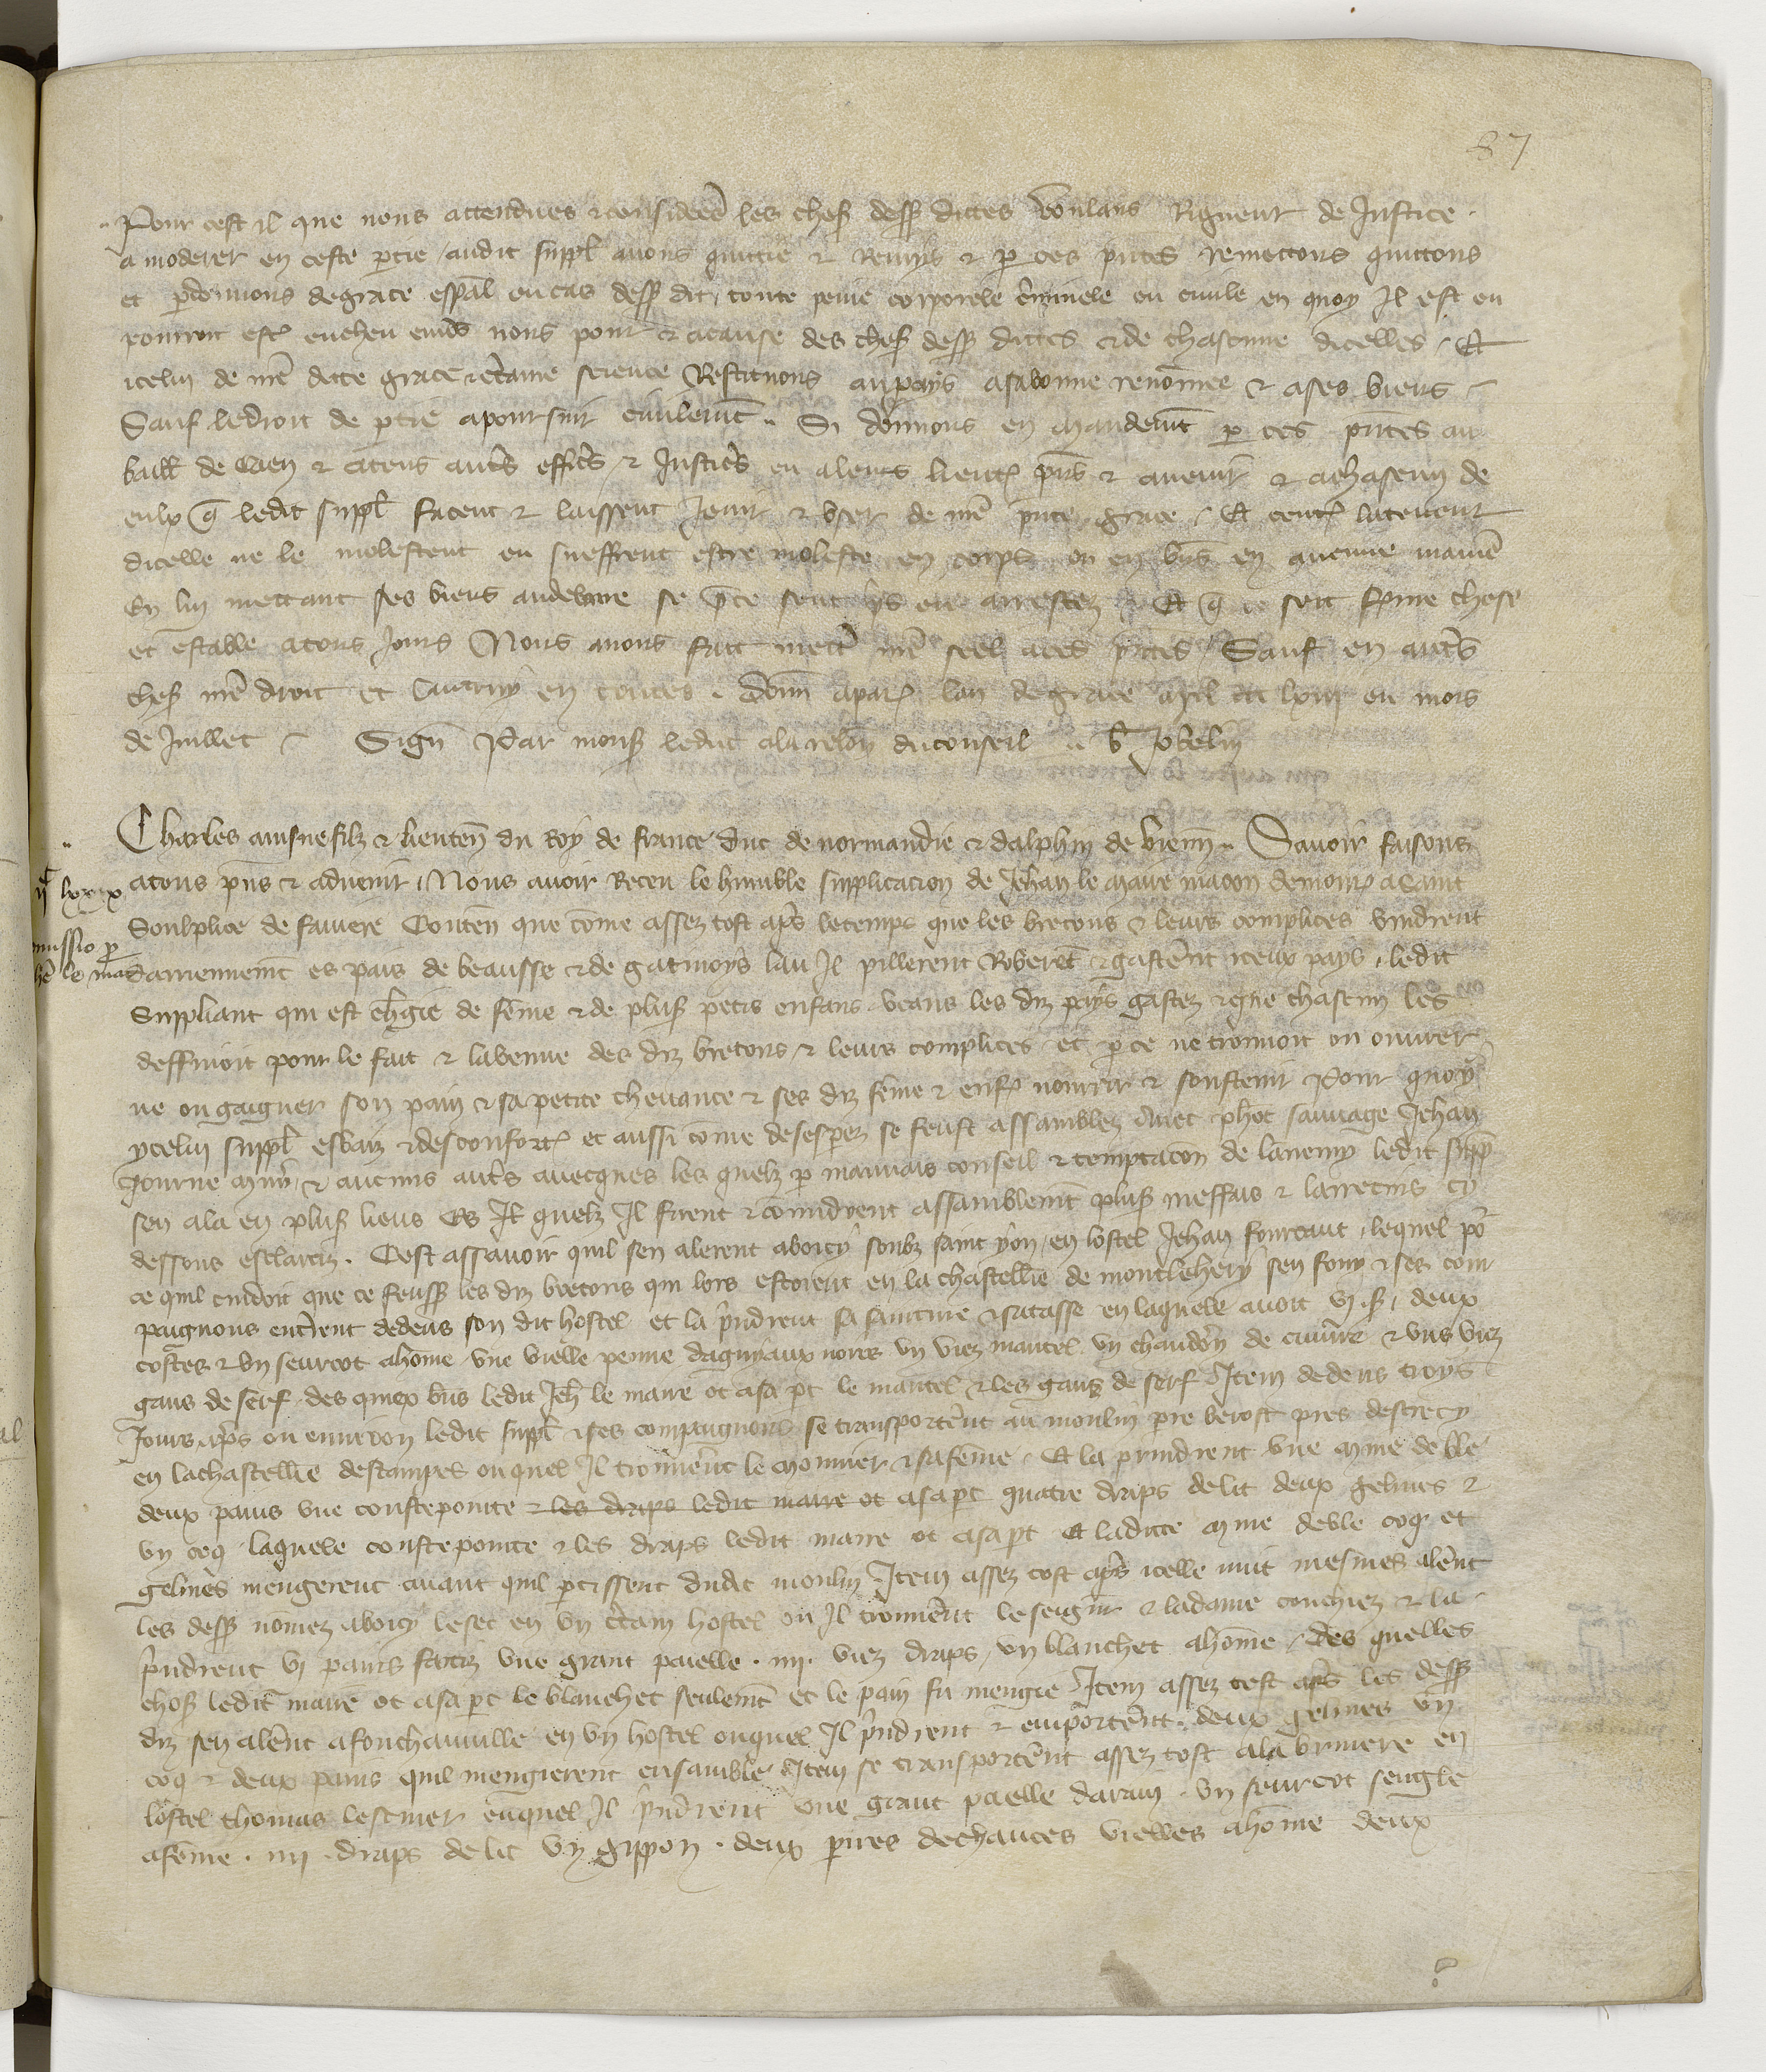 87
Pour cest il que nous attendues & consideré les choses dessus dictes voulans Rigueur de Justice
a moderer en ceste partie audit suppl avons quittie & Remys & par ces pntes remettons quittons
et pdonnons de grace espal ou cas dess dit toute peine corporele criminele ou civile en quoy Il est ou
pourroit estre encheu envers nous pour & a cause des choses dess dictes & de chascune dicelles Et
icelui de nre dicte grace & certaine science Restituons au pays a sa bonne renommee & a ses biens
Sauf le droit de partie a poursuir civilement Si donnons en mandemt par ces pntes au
baill de Caen & a tous autres officrs & Justicrs ou a leurs lieuts pns & avenir & a chascun de
eulx q ledit suppl facent & laissent Jouir & user de nre pnte grace Et contre la teneur
dicelle ne le molestent ou sueffrent estre moleste en corps ou en biens en aucune maniere
En lui mettant ses biens au delivre se pour ce sont pris ou arrestez Et q ce soit ferme chose
et estable a tous Jours Nous avons fait mettre nre seel a ces pntes Sauf en autres
choses nre droit et lautruy en toutes donn a Paris lan de grace mil ccc lxiiii ou mois
de Juillet Sign Par mons le duc a la relon du conseil
Charles ainsne filz & lieuten du Roy de france duc de normandie & dalphin de vienn Savoir faisons
a tous pns & advenir Nous avoir Receu le humble supplicacion de Jehan le maire macon demour a Saint
Soulplice de favere Conten que comme assez tost apres le temps que les bretons & leurs complices vindrent
darrennemt es pais de beausse & de gatinoys la ou Il pillerent Roberent & gasterent iceux pays ledit
Suppliant qui est chergie de femme & de pluss petis enfans veans les diz pays gastez & que chascun les
deffuioit pour le fait & la venue des diz bretons & leurs complices et pour ce ne trouvoit ou ouvrer
ne ou gaigner son pain & sa petite chevance & ses diz femme & enfans nourrir & soustenir Pour quoy
ycelui suppl esbaiz & desconfortz et aussi comme desesperez se feust assamblez avec phot sauvage Jehan
& aucuns autres avecques les quelz par mauvais conseil & temptacion de lanemy ledit supp
sen ala en pluss lieus Es Il quelz Il firent & commidrent assamblemt pluss meffais & larrecins cy
dessous esclarciz Cest assavoir quil sen alerent a boicy soubz saint yon en lostel Jehan fourcaut lequel por
ce quil cuidoit que ce feussent les diz bretons qui lors estoient en la chastellie de montlehery sen fouy & ses com
paignons entrerent dedens son dit hostel et la prindrent sa saincture & sa tasse en laquele avoit vj s deux
costes & un seurcot a homme une vielle penne daguyaux noirs un viez mantel un chauderon de cuivre & uns viez
gans de serf des quiex biens ledit Jeh le maire ot a sa part le mantel & les gans de serf Item dedens troys
Jours apres ou environ ledit suppl & ses compaignons se transporterent au moulin pres destrecy
en la chastellie destampes ou quel Il trouverent le monnier & sa femme Et la prindrent une myne de ble
deux pains une coustepointe & les draps ledit maire ot a sa part quatre draps de lit deux gelines &
un coq laquele coustepointe & les draps ledit maire ot a sa part Et la dicte myne de ble coq et
gelines mengerent avant quil partissent dudit moulin Item assez tost apres icelle nuit mesmes alerent
les dess nommez a boicy le sec en un certain hostel ou Il trouverent le seigneur & la dame couchiez & la
prindrent vj pains faitiz une grant paielle . iiii . viez draps un blanchet a homme des quelles
choses ledit maire ot a sa part le blanchet seulemt et le pain fu mengie Item assez tost apres les dess
diz sen alerent a fonchainville en un hostel ouquel Il prindrent & emporterent deux gelines un
coq & deux pains quil mengierent ensamble Item se transporterent assez tost a la bruiere en
lostel thomas ouquel Il prindrent une grant paielle darain un seurcot sengle
a femme . iiii . draps de lit un gippon . deux paires de chauces vielles a homme deux